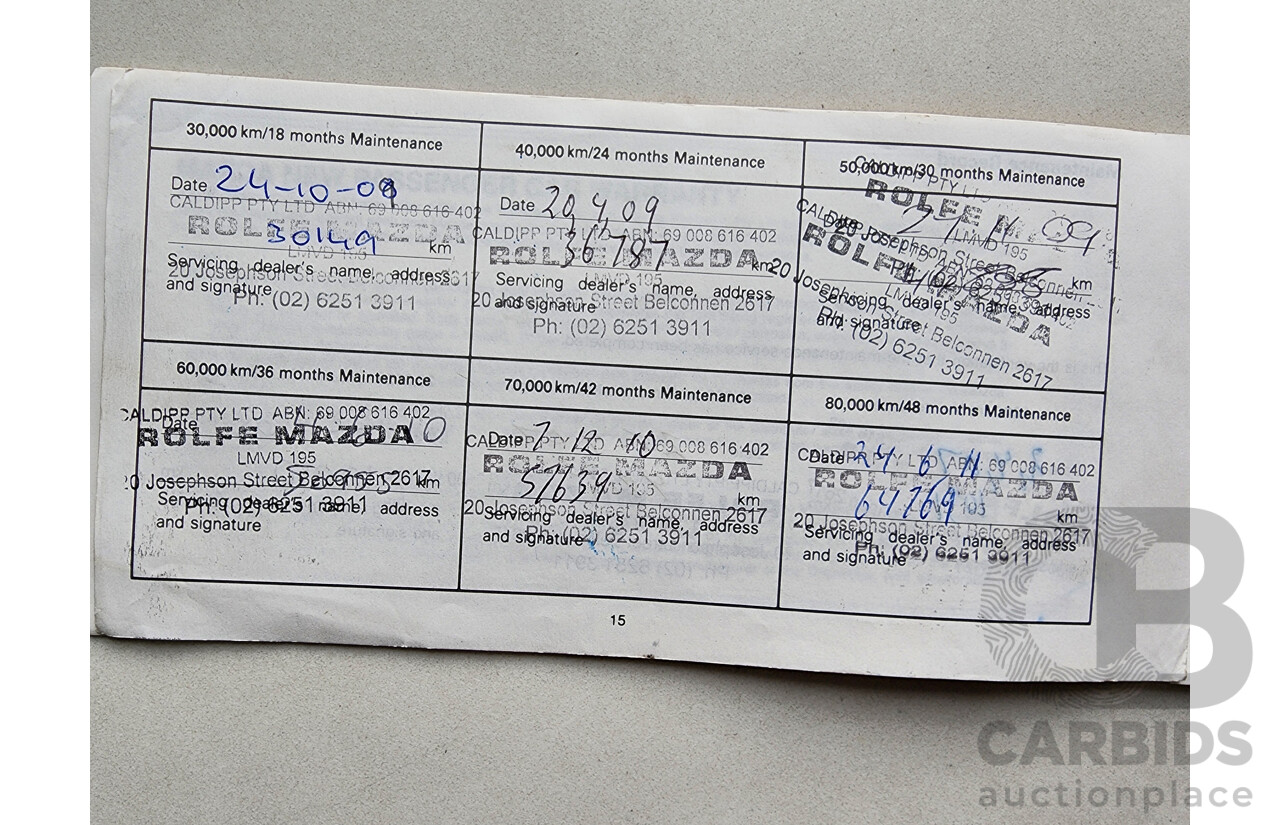 30,000 km/18 months Maintenance
Date 24-10-09
CALDIPP PTY LTD ABN: 69 008 616 402
ROLFE MAZDA
30149 km
LMVD 195
Servicing dealer's name, address
20 Josephson Street Belconnen 2617
and signature
Ph: (02) 6251 3911
40,000 km/24 months Maintenance
Date 20 4 09
CALDIPP PTY LTD ABN: 69 008 616 402
ROLFE MAZDA
36787 km
LMVD 195
Servicing dealer's name, address
20 Josephson Street Belconnen 2617
and signature
Ph: (02) 6251 3911
50,000 km/30 months Maintenance
CALDIPP PTY
ROLFE M
09
LMVD 195
km
Servicing dealer's name, address
and signature
Josephson Street Belconnen 2617
Ph: (02) 6251 3911
60,000 km/36 months Maintenance
CALDIPP PTY LTD ABN: 69 008 616 402
Date
ROLFE MAZDA
LMVD 195
20 Josephson Street Belconnen 2617
km
Servicing dealer's name, address
Ph: (02) 6251 3911
and signature
70,000 km/42 months Maintenance
Date 7 12 10
CALDIPP PTY LTD ABN: 69 008 616 402
ROLFE MAZDA
57639 km
LMVD 195
20 Josephson Street Belconnen 2617
Servicing dealer's name, address
and signature
Ph: (02) 6251 3911
80,000 km/48 months Maintenance
Date 24 6 11
CALDIPP PTY LTD ABN: 69 008 616 402
ROLFE MAZDA
64769 km
LMVD 195
20 Josephson Street Belconnen 2617
Servicing dealer's name, address
and signature
Ph: (02) 6251 3911
15
CB
CARBIDS
auctionplace